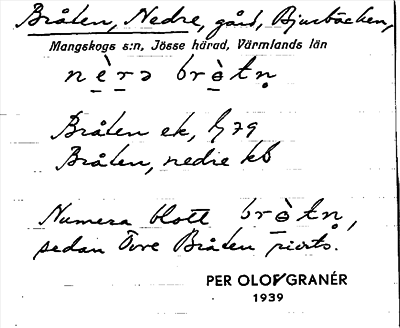 Bråten, Nedre, gård, Bjurbäcken,
Mangskogs s:n, Jösse härad, Värmlands län
nèrə brètn̥
Bråten ek, 79
Bråten, nedre kb
Numera blott brètn̥,
sedan Övre Bråten rivits.
PER OLOF GRANÉR
1939